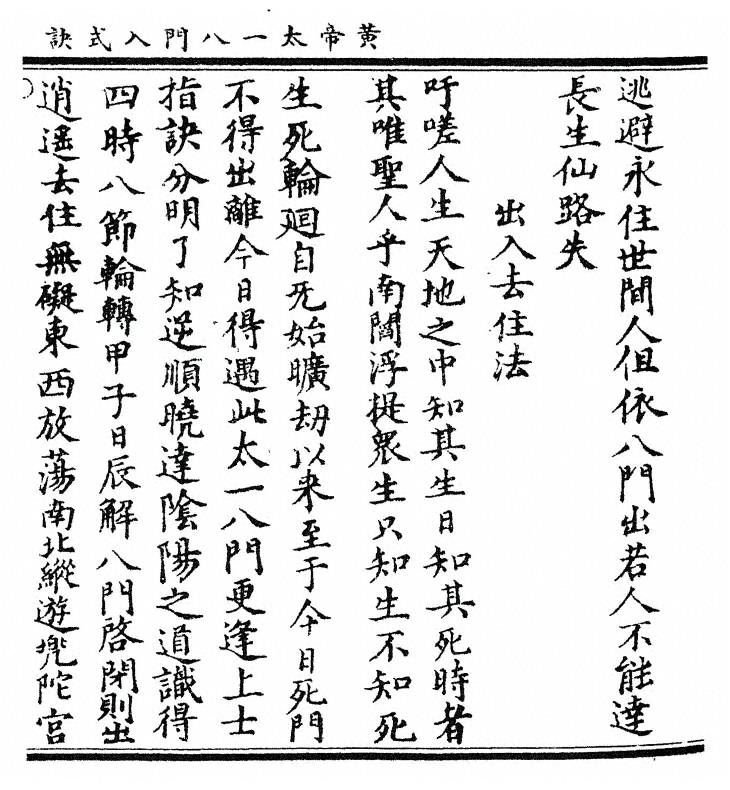 黃帝太一八門入式訣
逃避永住世間人但依八門出若人不能達
長生仙路失
出入去住法
吁嗟人生天地之中知其生日知其死時者
其唯聖人乎南閻浮提衆生只知生不知死
生死輪廻自无始曠劫以来至于今日死門
不得出離今日得遇此太一八門更逢上士
指訣分明了知逆順曉達陰陽之道識得
四時八節輪轉甲子日辰解八門啓閉則出
逍遥去住無礙東西放蕩南北縱遊兜陀宮